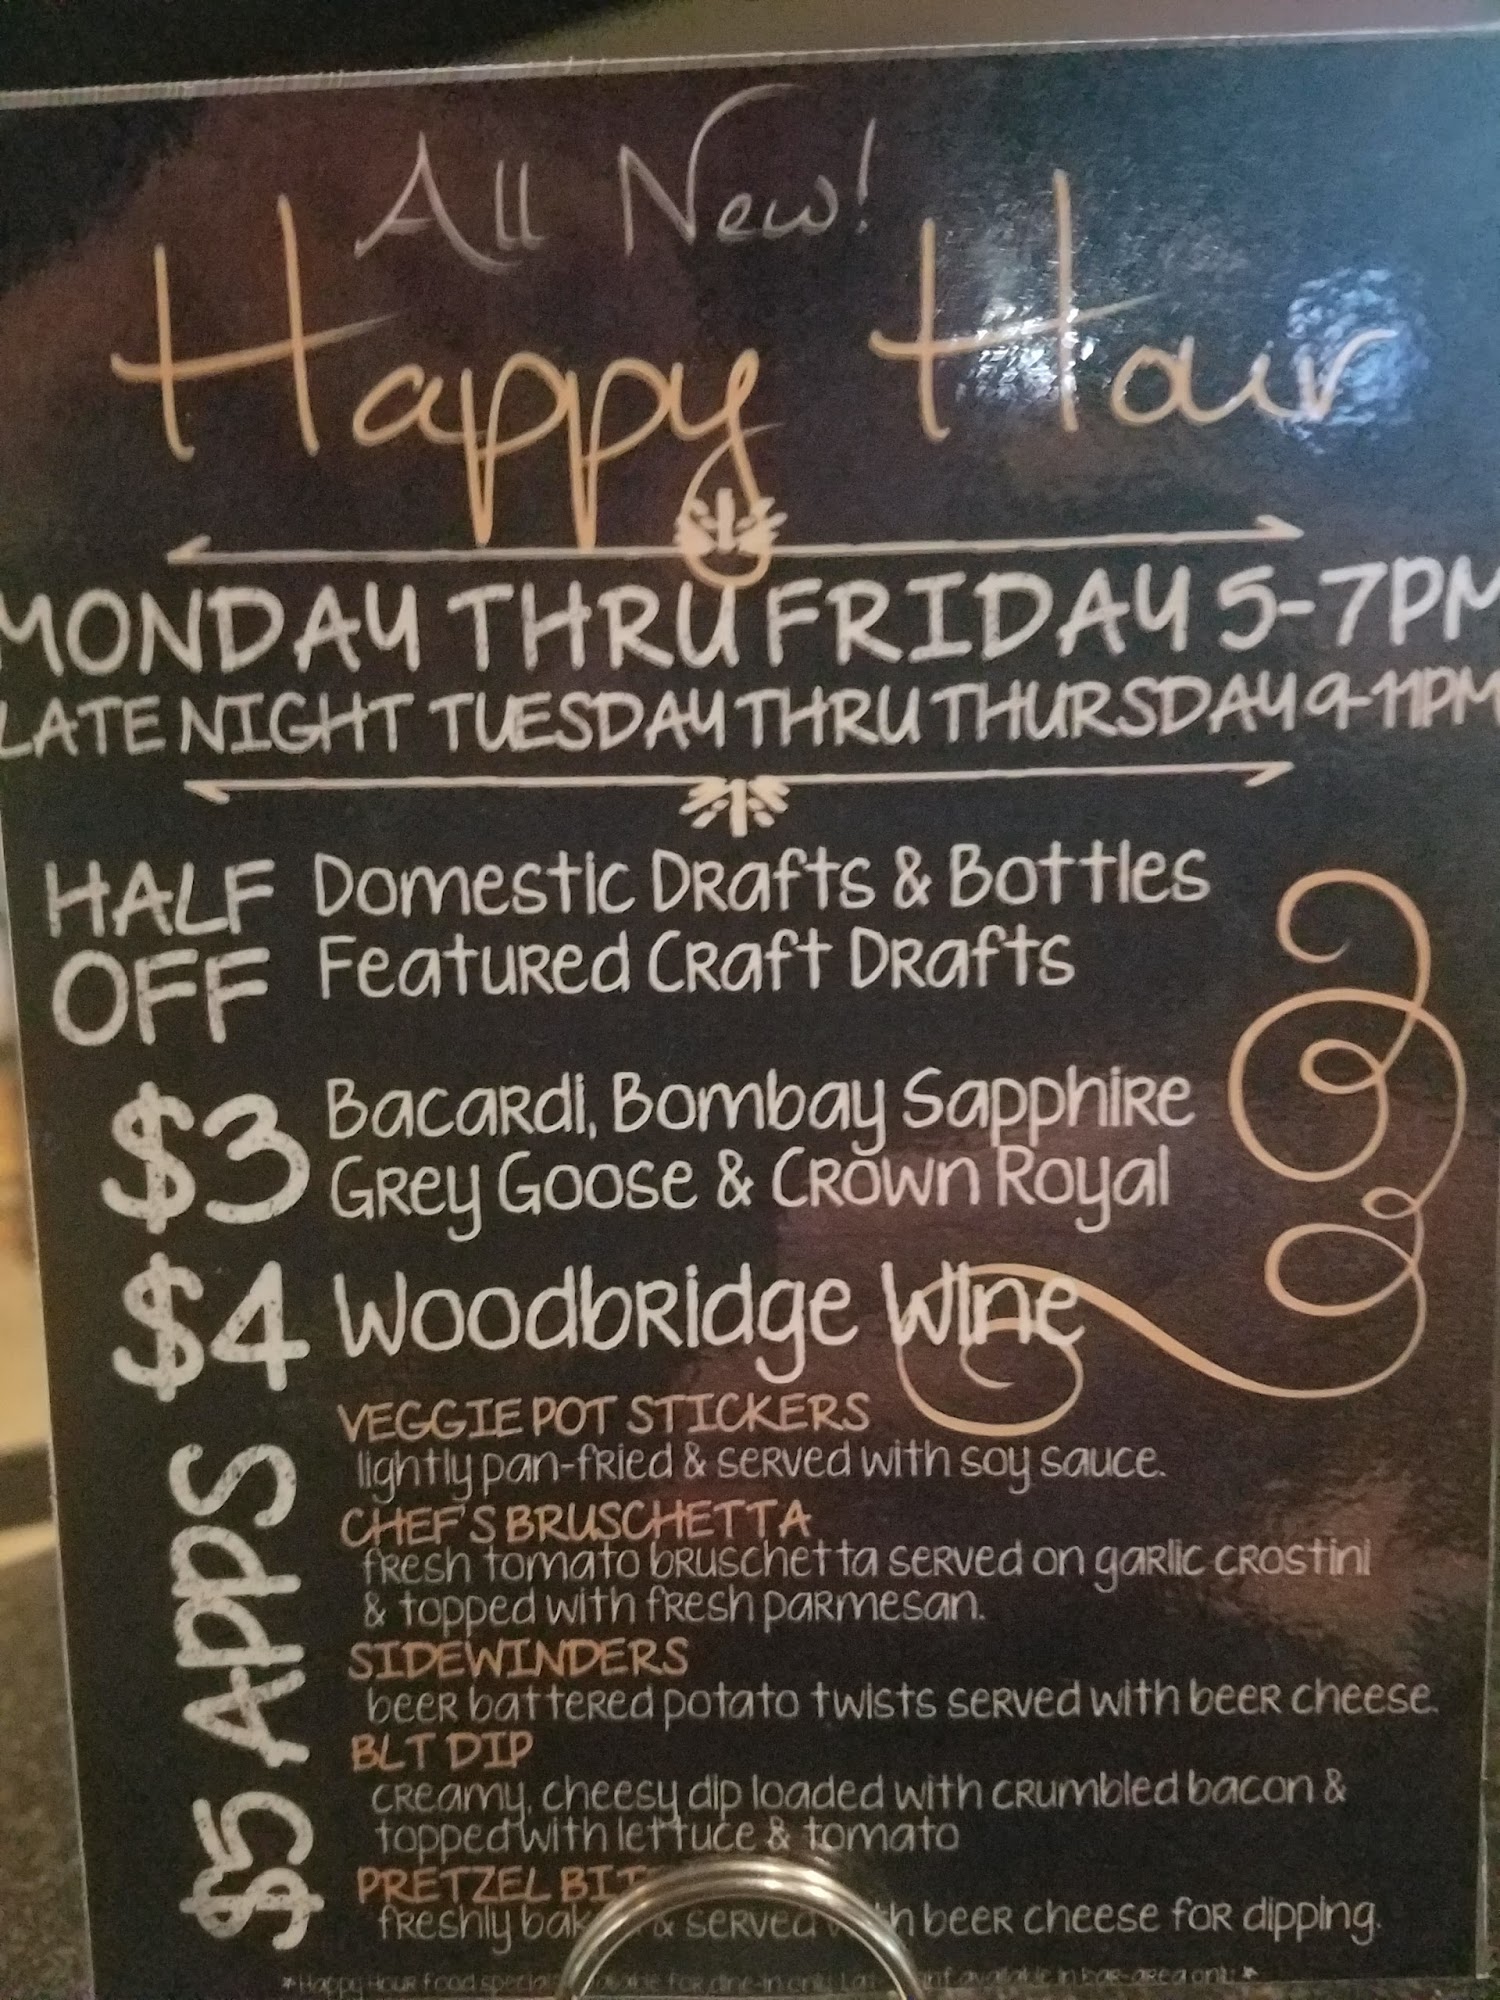 All New!
Happy Hour
MONDAY THRU FRIDAY 5-7PM
LATE NIGHT TUESDAY THRU THURSDAY 9-11PM
HALF OFF
Domestic Drafts & Bottles
Featured Craft Drafts
$3
Bacardi, Bombay Sapphire
Grey Goose & Crown Royal
$4 Woodbridge Wine
$5 Apps
VEGGIE POT STICKERS
lightly pan-fried & served with soy sauce.
CHEF'S BRUSCHETTA
fresh tomato bruschetta served on garlic crostini
& topped with fresh parmesan.
SIDEWINDERS
beer battered potato twists served with beer cheese.
BLT DIP
creamy, cheesy dip loaded with crumbled bacon &
topped with lettuce & tomato
PRETZEL
freshly & served with beer cheese for dipping.
*Happy Hour food for dine-in only. available in bar-area only *